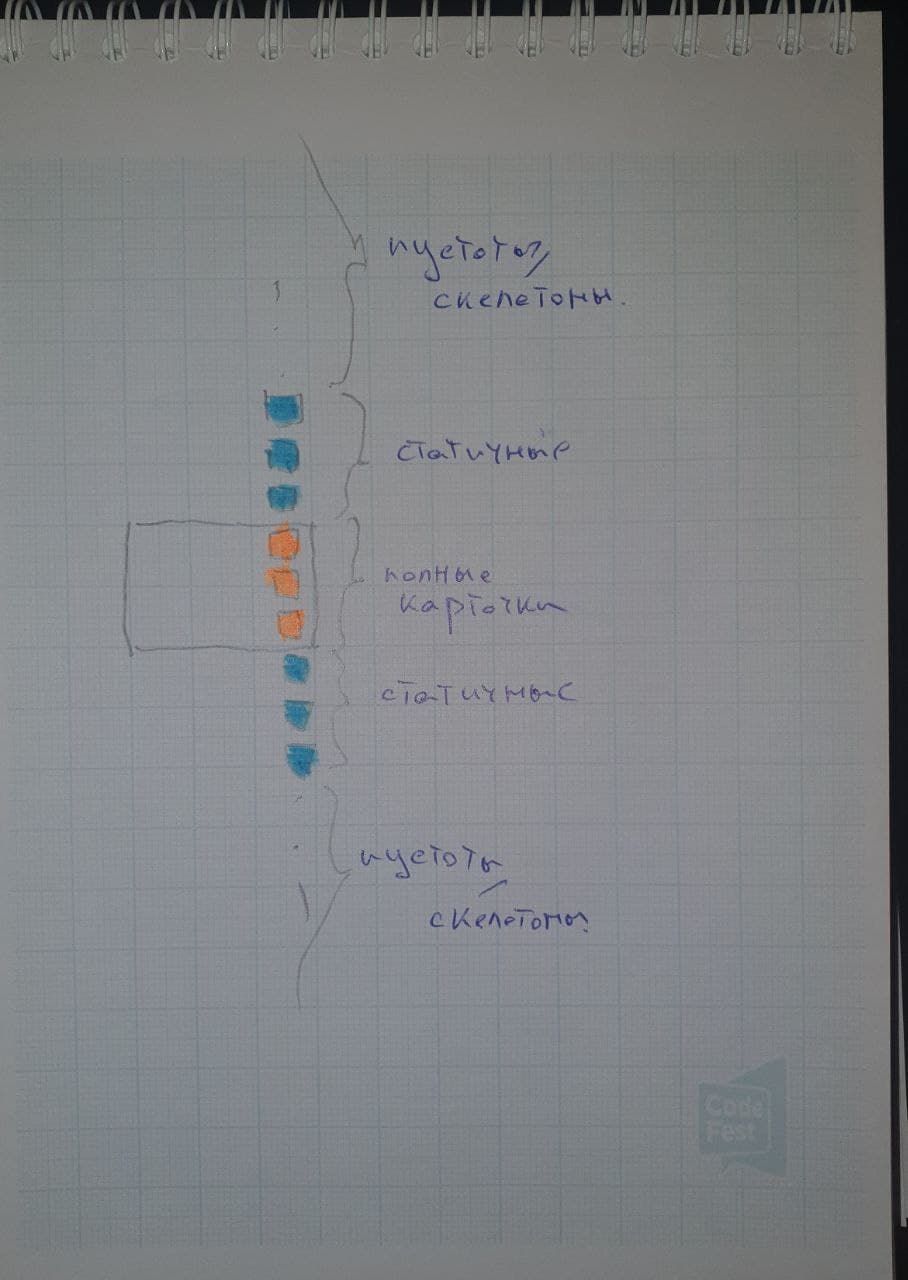 пустоты/
скелетоны.
статичные
полные
карточки
статичные
пустоты
/
скелетоны.
Code
Fest